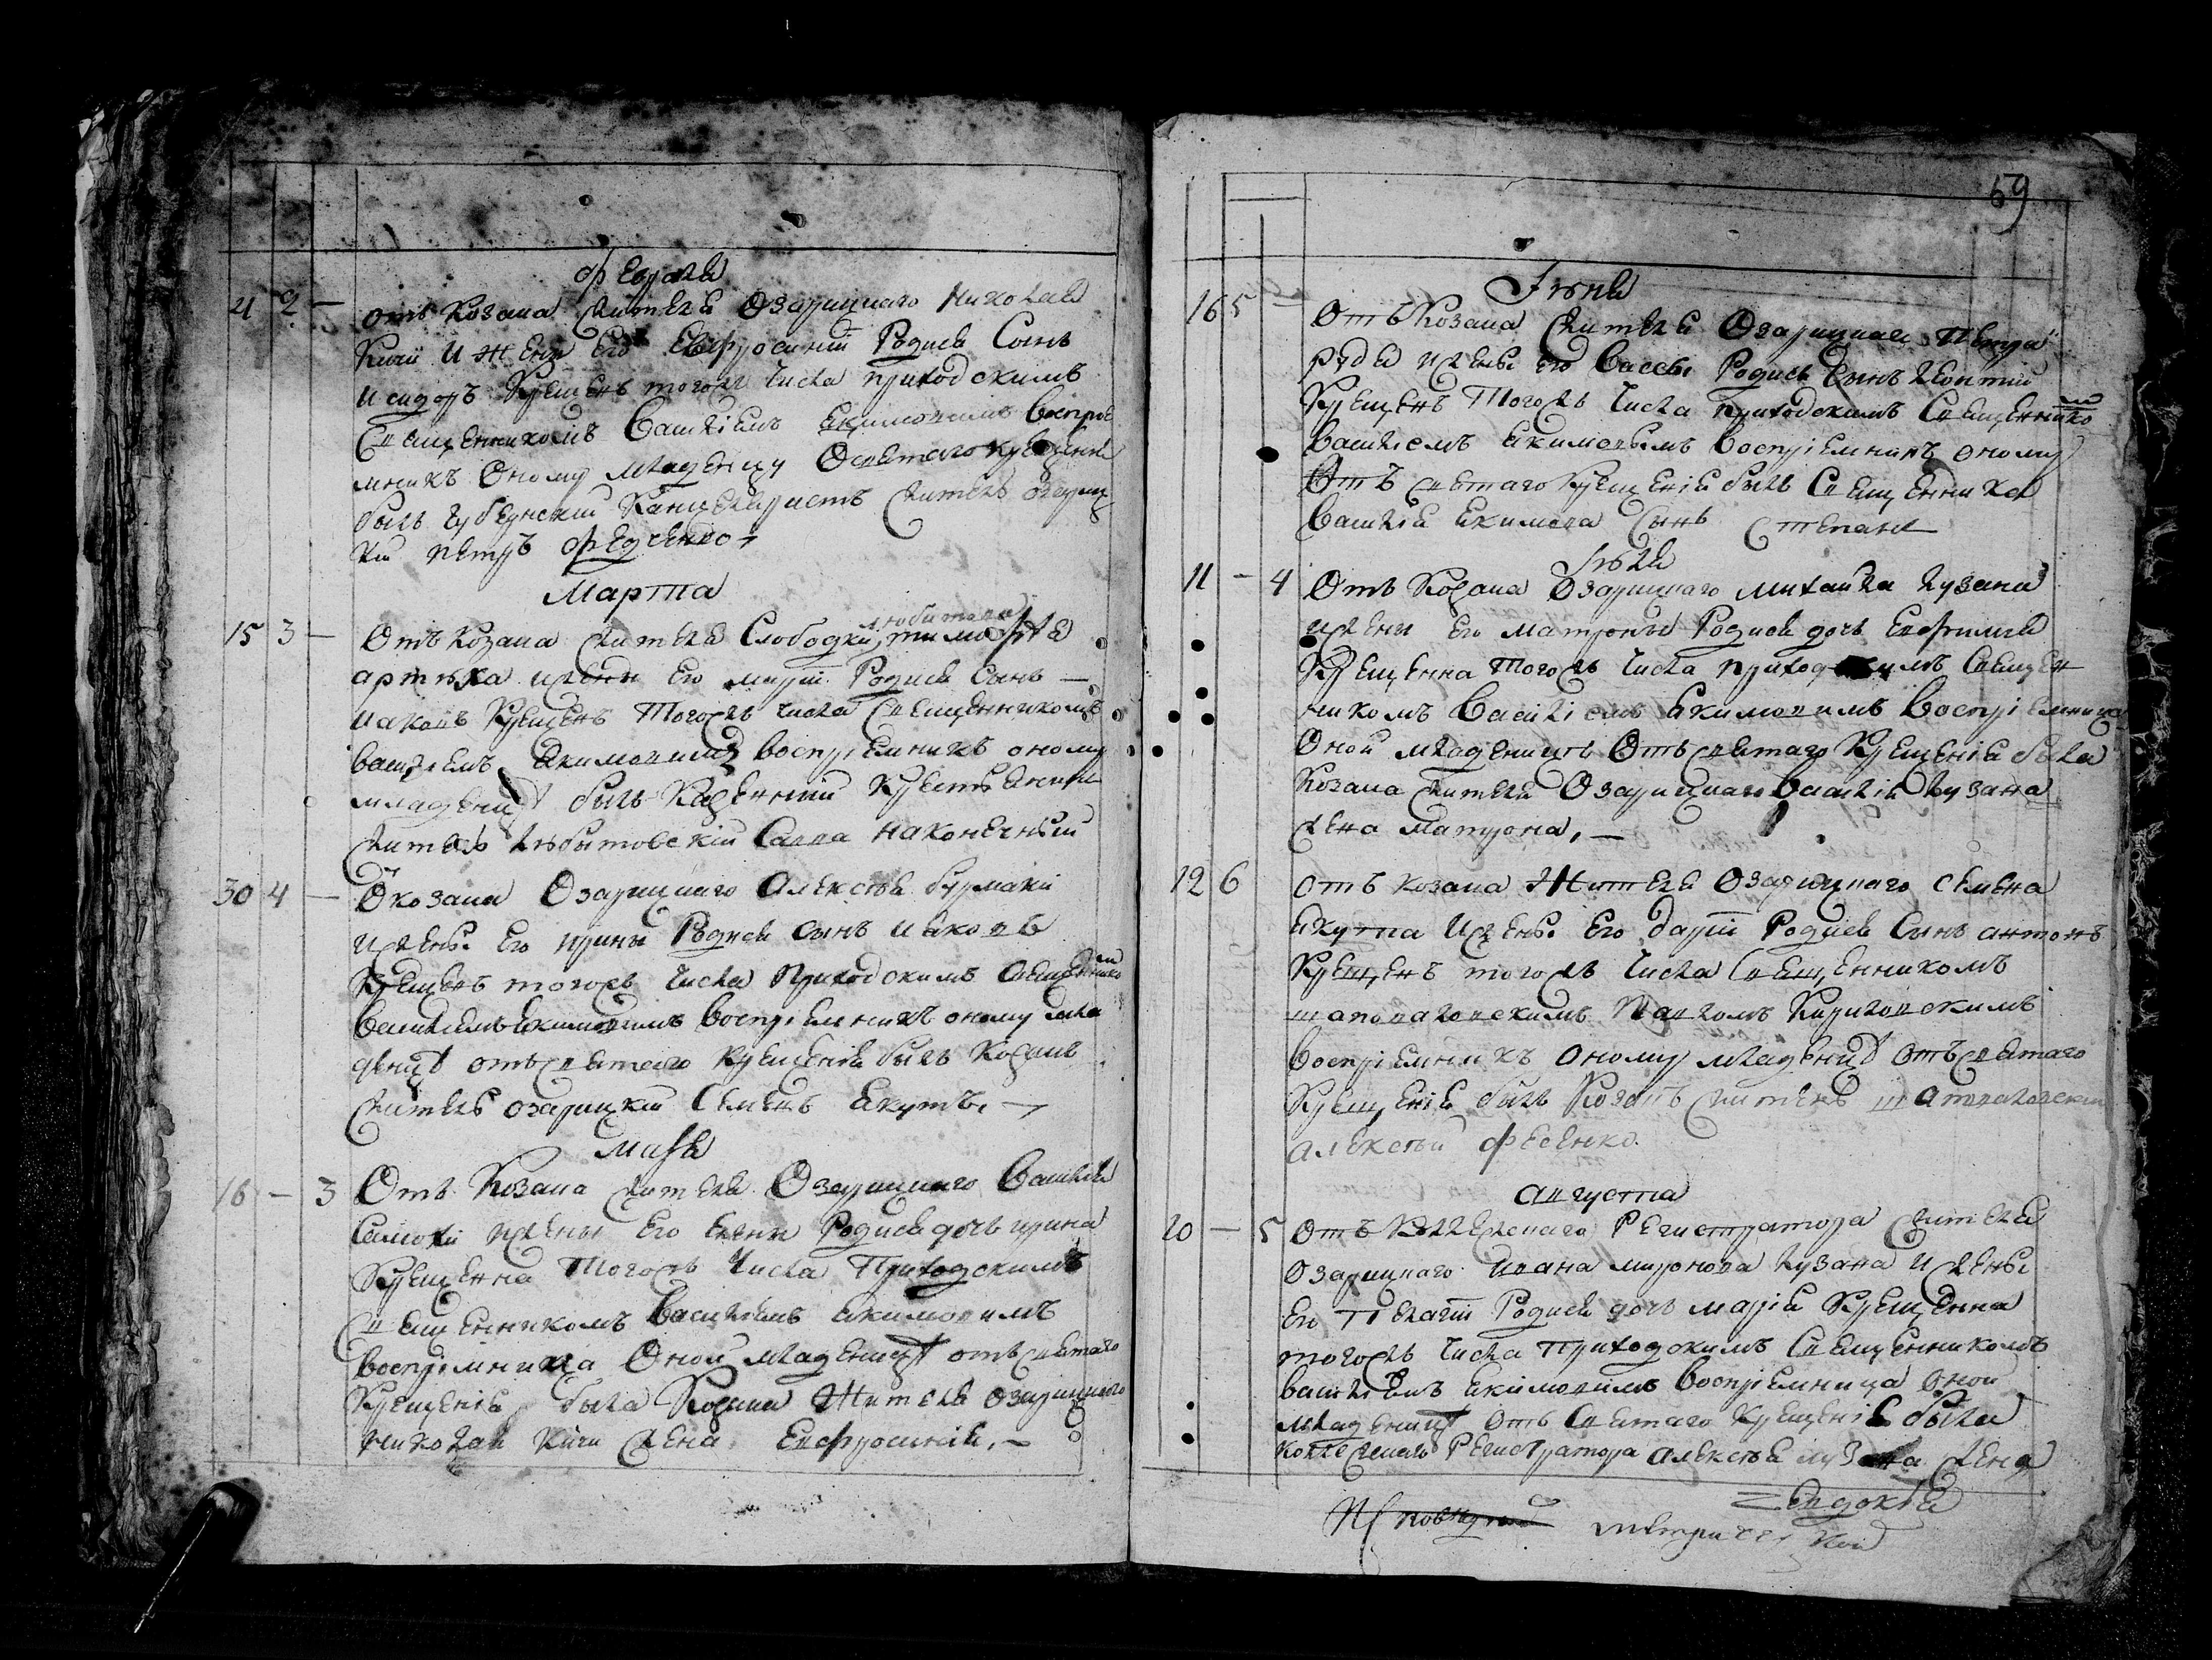 Февраля
21 2 — отъ Козака жителя Озарицкаго Николая
Кичи и жены его Евфросиніи Родися Сынъ
Исидоръ Крещенъ тогожъ числа приходскимъ
Священникомъ Василіемъ Екимовимъ воспріе
мникъ Оному младенцу От святаго крещенія
былъ губернскій Канцеляристъ житель озариц
кій петръ федченко
Марта
15 3 — Отъ Козака жителя Слободки любитова тимофея
артюха и жены его маріи Родися Сынъ —
иаковъ Крещенъ Тогожъ числа Священникомъ
василіемъ Акимовимъ воспріемникъ оному
младенцу былъ Казенный
житель любитовскій Савва наконечный
30 4 — Ѿ козака Озарицкаго Алексѣя бурмаки
и жены Его ирины Родися сынъ Иаковъ
Крещенъ тогожъ числа Приходскимъ Священникомъ
василіемъ Екимовимъ воспріемникъ оному мла
денцу отъ святаго крещенія былъ Козакъ
житель озарицкій Семенъ Якутъ. —
маія
16 — 3 Отъ Козака жителя Озарицкаго Василія
и жены Его елены Родися дочь ирина
Крещенна Тогожъ числа Приходскимъ
Священникомъ Василіемъ акимовимъ
воспріемница Оной младеницѣ отъ святаго
Крещенія была Козака Жителя озарицкаго
николая Кичи жена Евфросинія. —
59
Іюня
16 5 — Отъ Козака жителя Озарицкаго Петра
и жены его вассы Родися Сынъ леонтій
Крещенъ Тогожъ числа приходскимъ Священникомъ
василіемъ Екимовымъ воспріемникъ оному
Отъ святаго Крещенія былъ Священника
василія екимова Сынъ Степанъ —
Іюля
11 — 4 Отъ Козака Озарицкаго михаила кузана
и жены Его матроны Родися дочь Евфимія
Крещенна Тогожъ числа приходскимъ Священ
никомъ Василіемъ Екимовимъ воспріемница
Оной младеницѣ Отъ святаго Крещенія была
Козака жителя Озарицкаго василія кузана
жена Матрона. —
12 6 отъ козака Жителя Озарицкаго семена
Якутта и жены Его даріи Родися Сынъ антонъ
Крещенъ тогожъ числа Священникомъ
Павломъ
воспріемникъ оному младенцу отъ святаго
Крещенія былъ Козакъ житель
алексѣй фесенко.
августа
20 — 5 Отъ Коллежскаго Регистратора жителя
Озарицкаго Ивана миронова кузана и жены
Его Пелагіи Родися дочь марія Крещенна
тогожъ числа Приходскимъ Священникомъ
василіемъ акимовимъ воспріемница Оной
младеницѣ Отъ Святаго Крещенія была
коллежскаго Регистратора алексѣя кузана жена
Евдокія